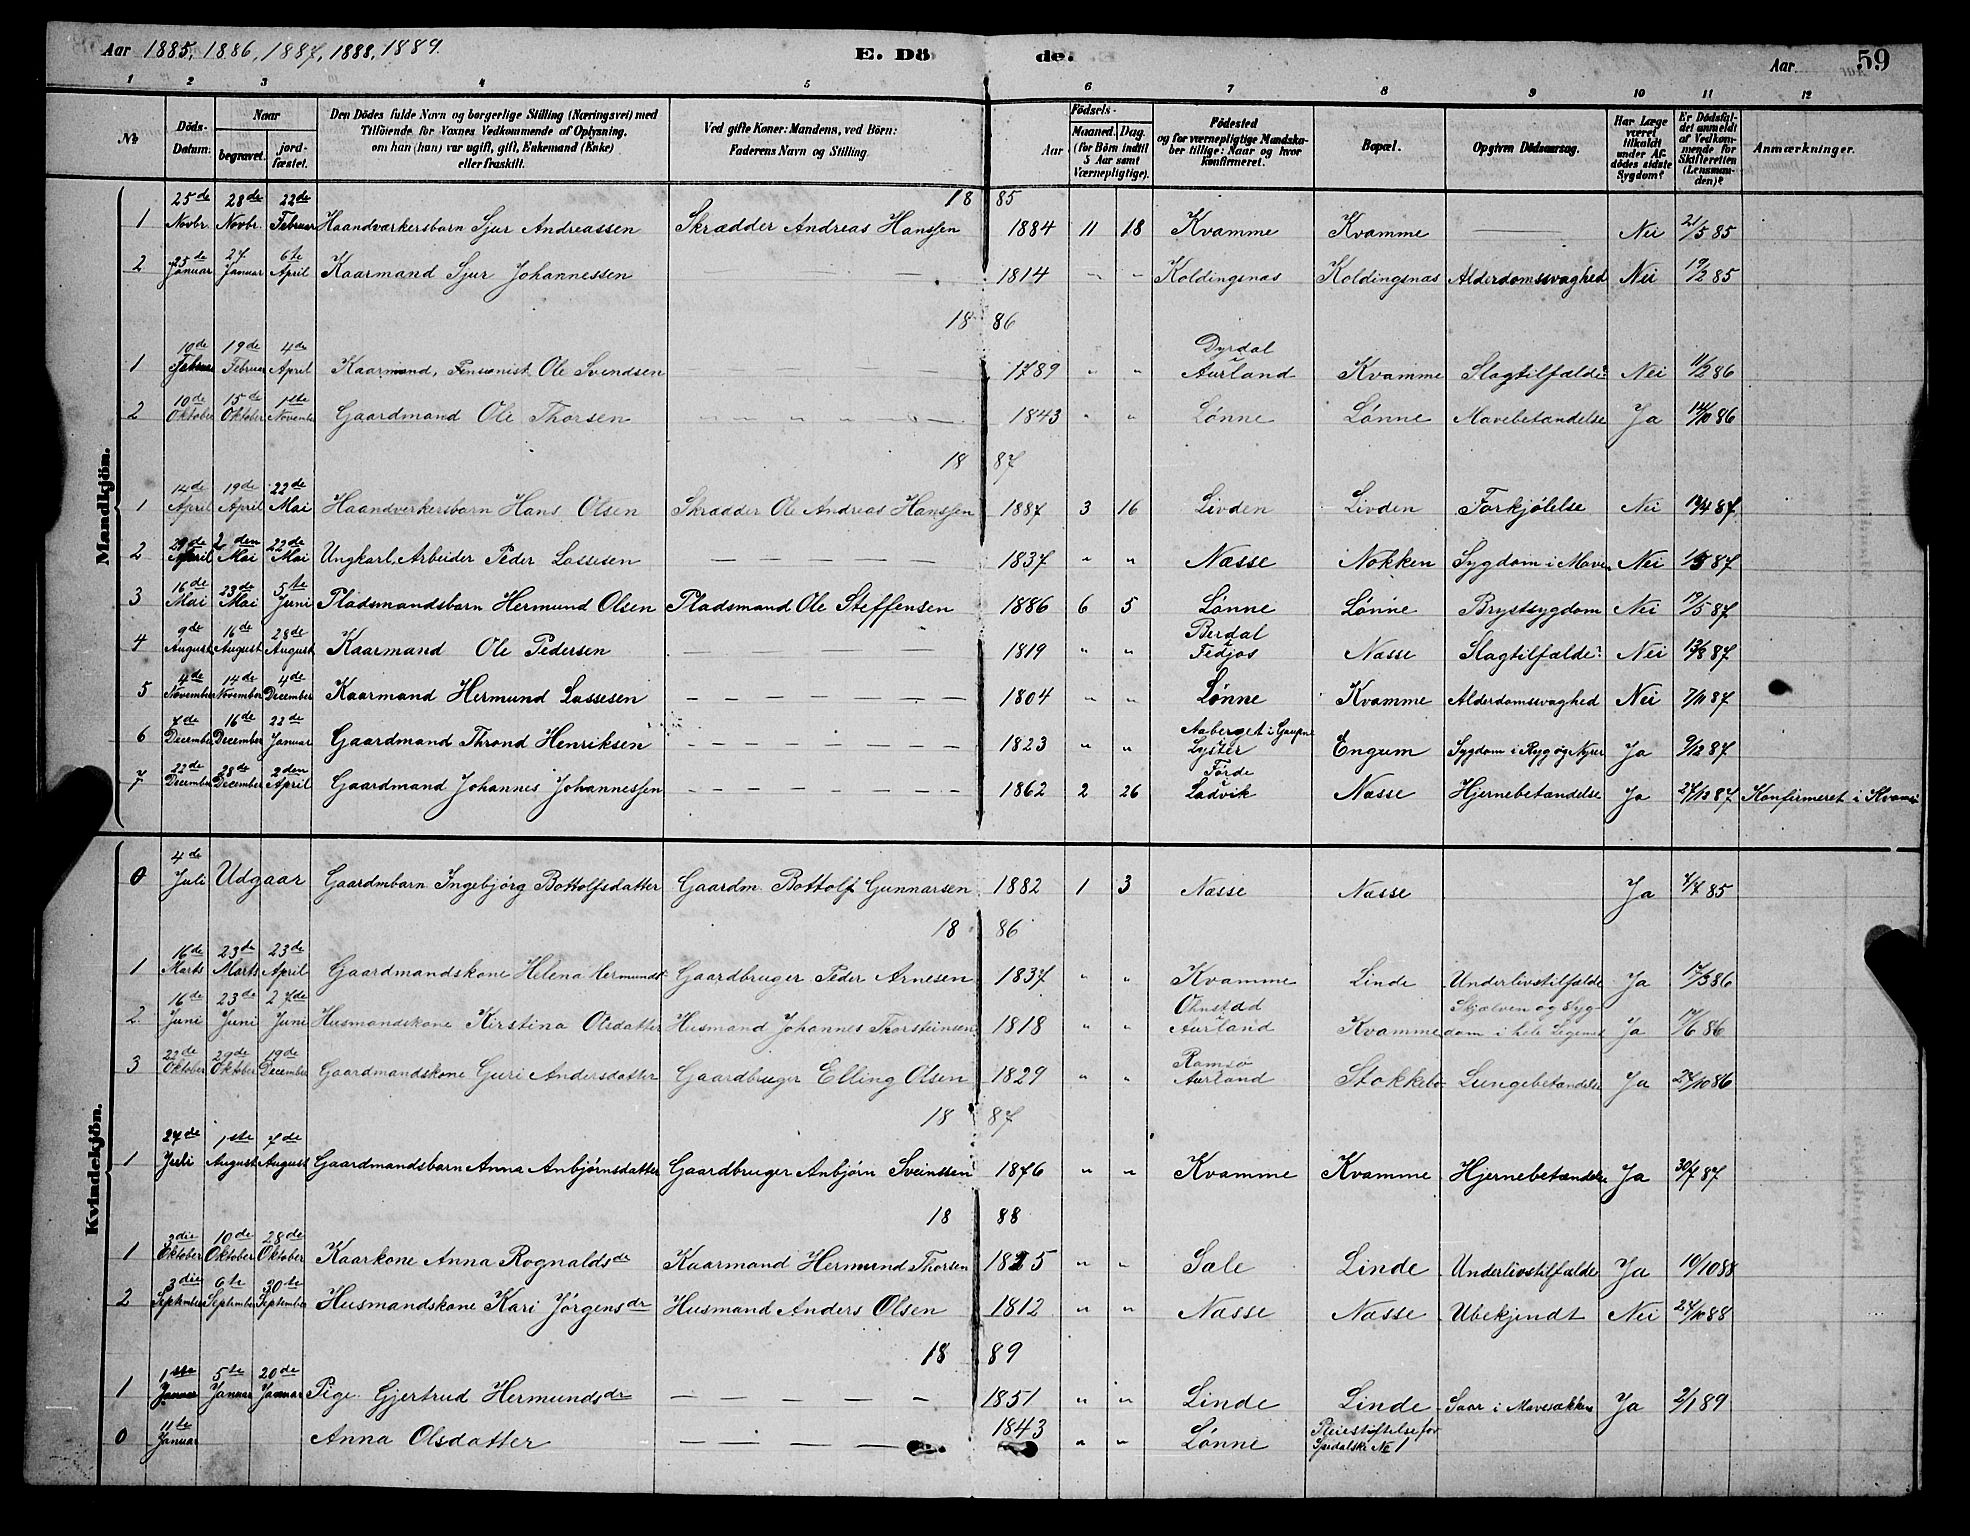 Aar 1885, 1886, 1887, 1888, 1889. E. Döde. Aar 59
1 2 3 4 5 6 7 8 9 10 11 12
No. Döds-Datum. Naar begravet. jord-fæstet. Den Dödes fulde Navn og borgerlige Stilling (Næringsvei) med Tilföiende for Voxnes Vedkommende af Oplysning, om han (hun) var ugift, gift, Enkemand (Enke) eller fraskilt. Ved gifte Koner: Mandens, ved Börn: Faderens Navn og Stilling. Födsels- Aar Maaned. Dag. (for Börn indtil 5 Aar samt Værnepligtige). Födested og for værnepligtige Mandskaber tillige: Naar og hvor konfirmeret. Bopæl. Opgiven Dödsaarsag. Har Læge været tilkaldt under Afdödes sidste Sygdom? Er Dödsfaldet anmeldt af Vedkommende for Skifteretten (Lensmanden)? Anmærkninger.
Mandkjön.
1885
1 25de Novbr. 28de Novbr. 22de Februar Haandværkersbarn Sjur Andreassen Skrædder Andreas Hanssen 1884 11 18 Kvamme Kvamme — Nei 2/5 85
2 25de Januar 27 Januar 6te April Kaarmand Sjur Johannessen — — 1814 - - Koldingsnæs Koldingsnæs Alderdomssvaghed Nei 19/2 85
1886
1 10de Februar 19de Februar 4de April Kaarmand, Pensionist Ole Svendsen — — 1789 " " Dyrdal i Aurland Kvamme Slagtilfælde? Nei 11/2 86
2 10de Oktober 15de Oktober 1ste Novembr Gaardmand Ole Thorsen — " " " — 1843 " " Lønne Lønne Mavebetændelse Ja 14/10 86
1887
1 14de April 19de April 22de Mai Haandverkersbarn Hans Olsen Skrædder Ole Andreas Hanssen 1887 3 16 Livden Livden Forkjølelse Nei 19/4 87
2 29de April 2den Mai 22de Mai Ungkarl, Arbeider Peder Lassesen — — — — 1837 " " Næsse Nokken Sygdom i Maven Nei 1/5 87
3 16de Mai 23de Mai 5te Juni Pladsmandsbarn Hermund Olsen Pladsmand Ole Steffensen 1886 6 5 Lønne Lønne Brystsygdom Nei 19/5 87
4 9de August 16de August 28de August Kaarmand Ole Pedersen — — — — — 1819 " " Berdal Fedjos Næsse Slagtilfælde? Nei 13/8 87
5 4de November 14de November 4de December Kaarmand Hermund Lassesen — — — — — 1804 " " Lønne Kvamme Alderdomssvaghed Nei 7/11 87
6 7de December 16de December 22de Januar Gaardmand Thrond Henriksen — — — — — 1823 " " Aaberget i Gaupne Lyster Engum Sygdom i Ryg og Nyrer Ja 9/12 87
7 22de December 28de December 2den April Gaardmand Johannes Johannessen — — — — — 1862 2 26 Førde i Ladvik Næsse Hjernebetændelse Ja 27/12 87 Konfirmeret i Kvamme
Kvindekjön.
0 4de Juli Udgaar Gaardmbarn Ingebjörg Bottolfsdatter Gaardm. Bottolf Gunnarsen 1882 1 3 Næsse Næsse Ja 4/7 85
1886
1 16de Marts 23de Marts 23de April Gaardmandskone Helena Hermundsd. Gaardbruger Peder Arnesen 1837 " " Kvamme Linde Underlivstilfælde Ja 17/3 86
2 16de Juni 23de Juni 27de Juni Husmandskone Kirstina Olsdatter Husmand Johannes Thorsteinsen 1818 " " Ohnstad Aurland Kvamme Skjælven og Sygdom i hele Legemet Ja 17/6 86
3 22de Oktober 29de Oktober 19de December Gaardmandskone Guri Andersdatter Gaardbruger Elling Olsen 1829 " " Ramsø Aurland Stokkebø Lungebetændelse Ja 24/10 86
1887
1 27de Juli 1ste August 7de August Gaardmandsbarn Anna Anbjørnsdatter Gaardbruger Anbjørn Sveinssen 1876 " " Kvamme Kvamme Hjernebetændelse Ja 30/7 87
1888
1 3die Oktober 10de Oktober 28de Oktober Kaarkone Anna Rognaldsdr Kaarmand Hermund Thorsen 1825 " " Sale Linde Underlivstilfælde Ja 10/10 88
2 3die September 6te September 30te September Husmandskone Kari Jørgensdr Husmand Anders Olsen 1812 " " Næsse Næsse Ubekjendt Nei 24/10 88
1889
1 1ste Januar 5te Januar 20de Januar Pige Gjertrud Hermundsdr — — — — — 1851 " " Linde Linde Saar i Mavesækken Ja 2/1 89
0 11te Januar Anna Olsdatter — — — 1843 " " Lønne Pleiestiftelse for Spedalske No 1